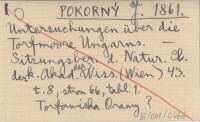 POKORNÝ J. 1861.
Untersuchungen über die
Torfmoore Ungarns. —
Sitzungsber. d. Natur. Cl.
der k. Akad. der Wiss. (Wien) 43.
t. 8, stron 66, tabl. 1.
Torfowiska Orawy ?